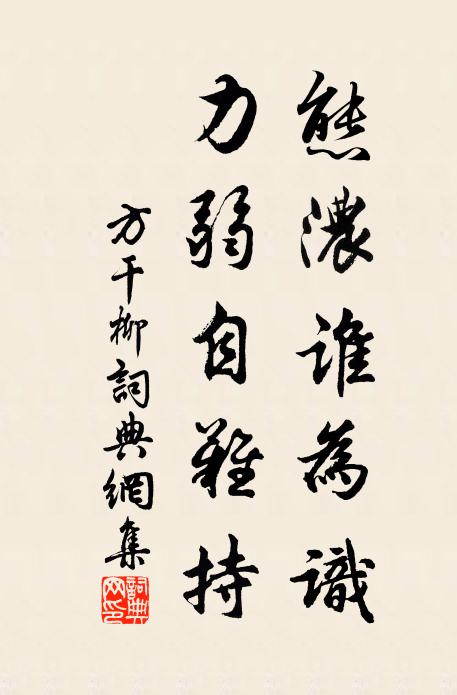 態濃誰為識
力弱自難持
方干柳詞典網集
詞典
网印